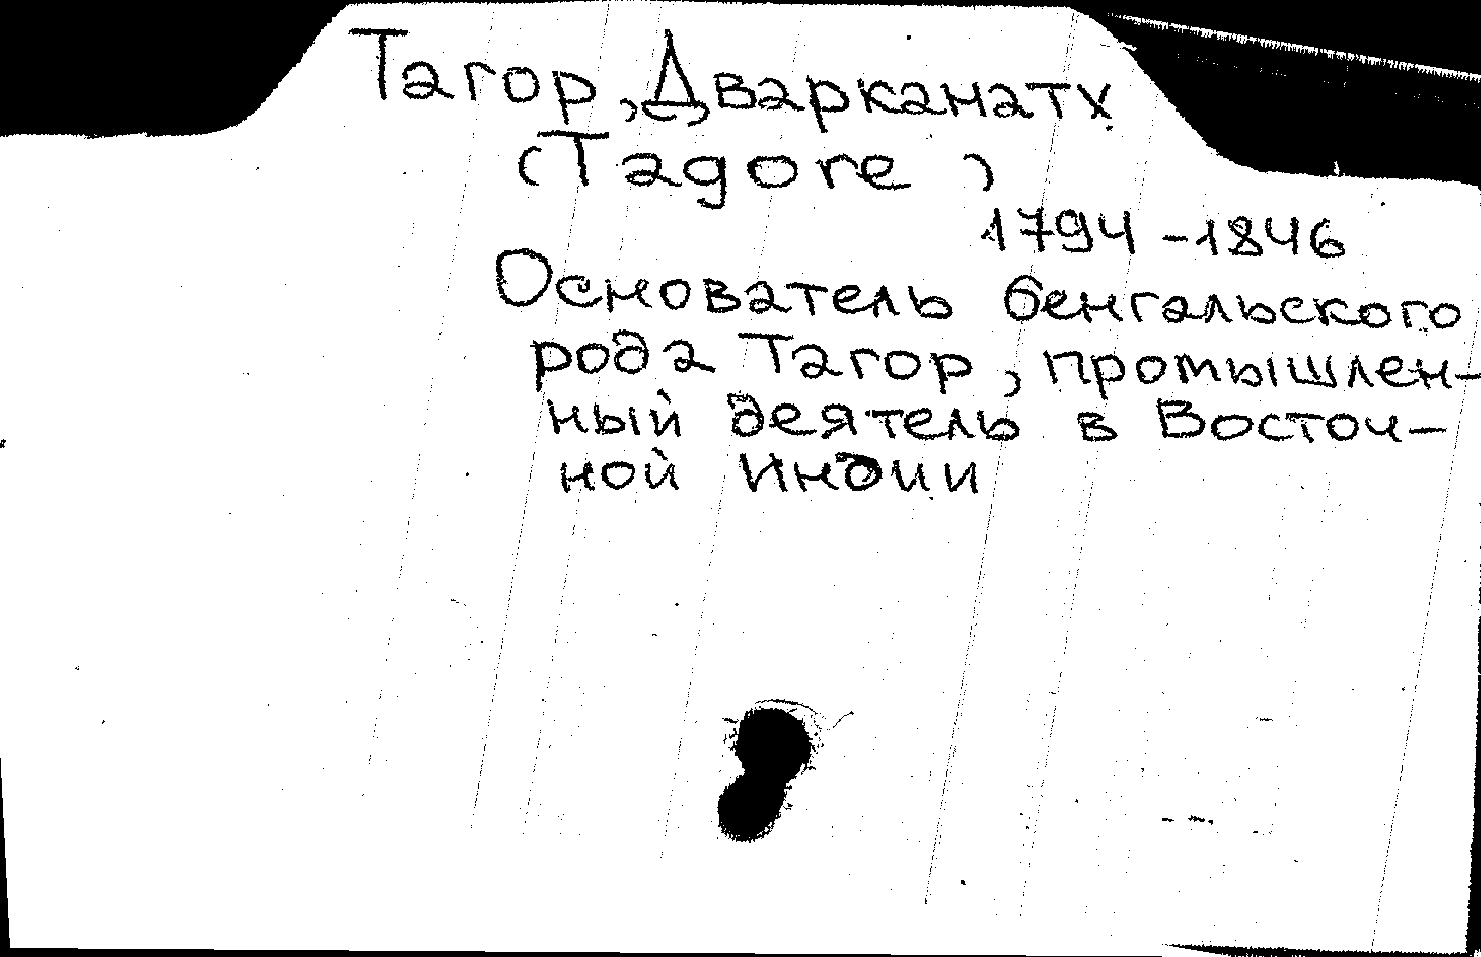 Тагор, Дварканатх
(Tagore )
1794 - 1846
Основатель бенгальского
рода Тагор, промышлен-
ный деятель в Восточ-
ной Индии